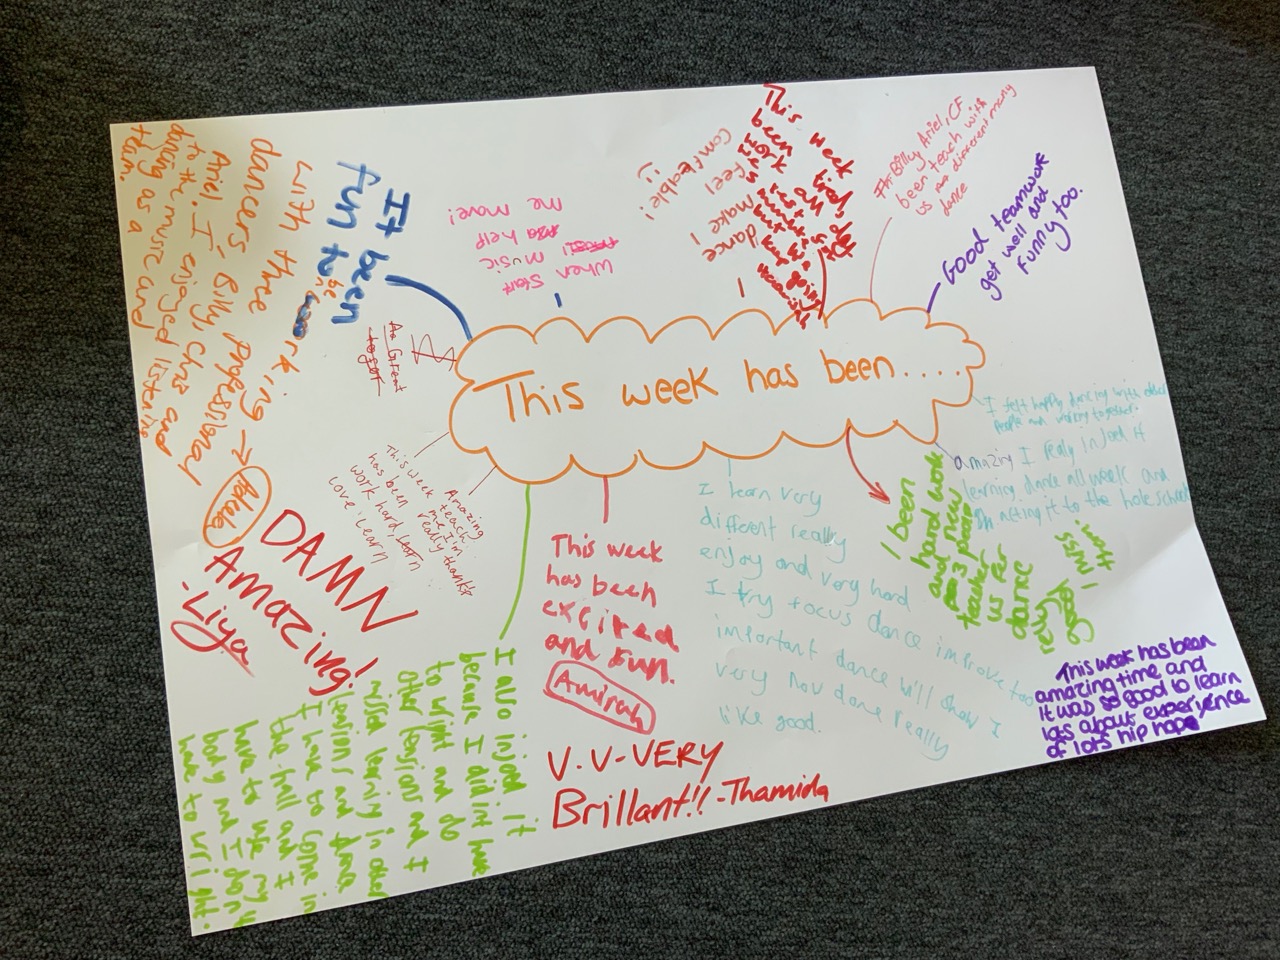 This week has been....
It been
fun to be
With three
dancers professional
Ariel. I Billy, Chris and
to the music and listening
dancing as a
team.
Adele
When start
music
help
me move!
I
dance
make
feel
Comftable!
This week
been
Billy, Ariel, CF
been teach with
us different many
dance
Good teamwork
get well and
funny too.
I felt happy dancing with other
people and working together.
amazing I really injoed it
learning dance all week and
acting it to the hole school
I been
hand work
and new
3 people
teacher
us for
dance
very
good
I miss
them
This week has been
amazing time and
it was so good to learn
lots about experience
of lots hip hope
I learn very
different really
enjoy and very hard
I try focus dance improve too
important dance will show I
very nov done really
like good.
This week
has been
excited
and fun.
Amirah
V.V-VERY
Brillant!! -Thamida
I also injoed it
because I did int have
to wright and do
other lensions and I
missd learning in other
lensions and
I have to come in
the hall and I
have to use my
body and I don't
have to wright.
Amazing
teach
me, I'm
really thanks
This week
has been
work hard, learn
love learn
A Great
DAMN
Amazing!
-Liya